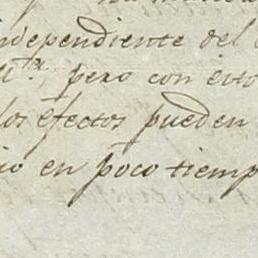 independiente del
pero con esto
los efectos pueden
en poco tiemp